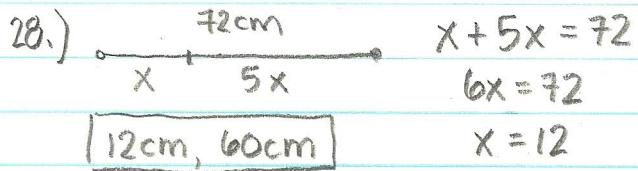 28.)
72cm
x 5x
12cm, 60cm
x + 5x = 72
6x = 72
x = 12